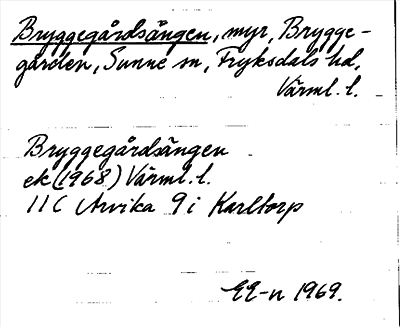 Bryggegårdsängen, myr, Brygge-
gården, Sunne sn, Fryksdals hd,
Värml. l.
Bryggegårdsängen
ek (1968) Värml. l.
11C Arvika 9 i Karltorp
EE-n 1969.